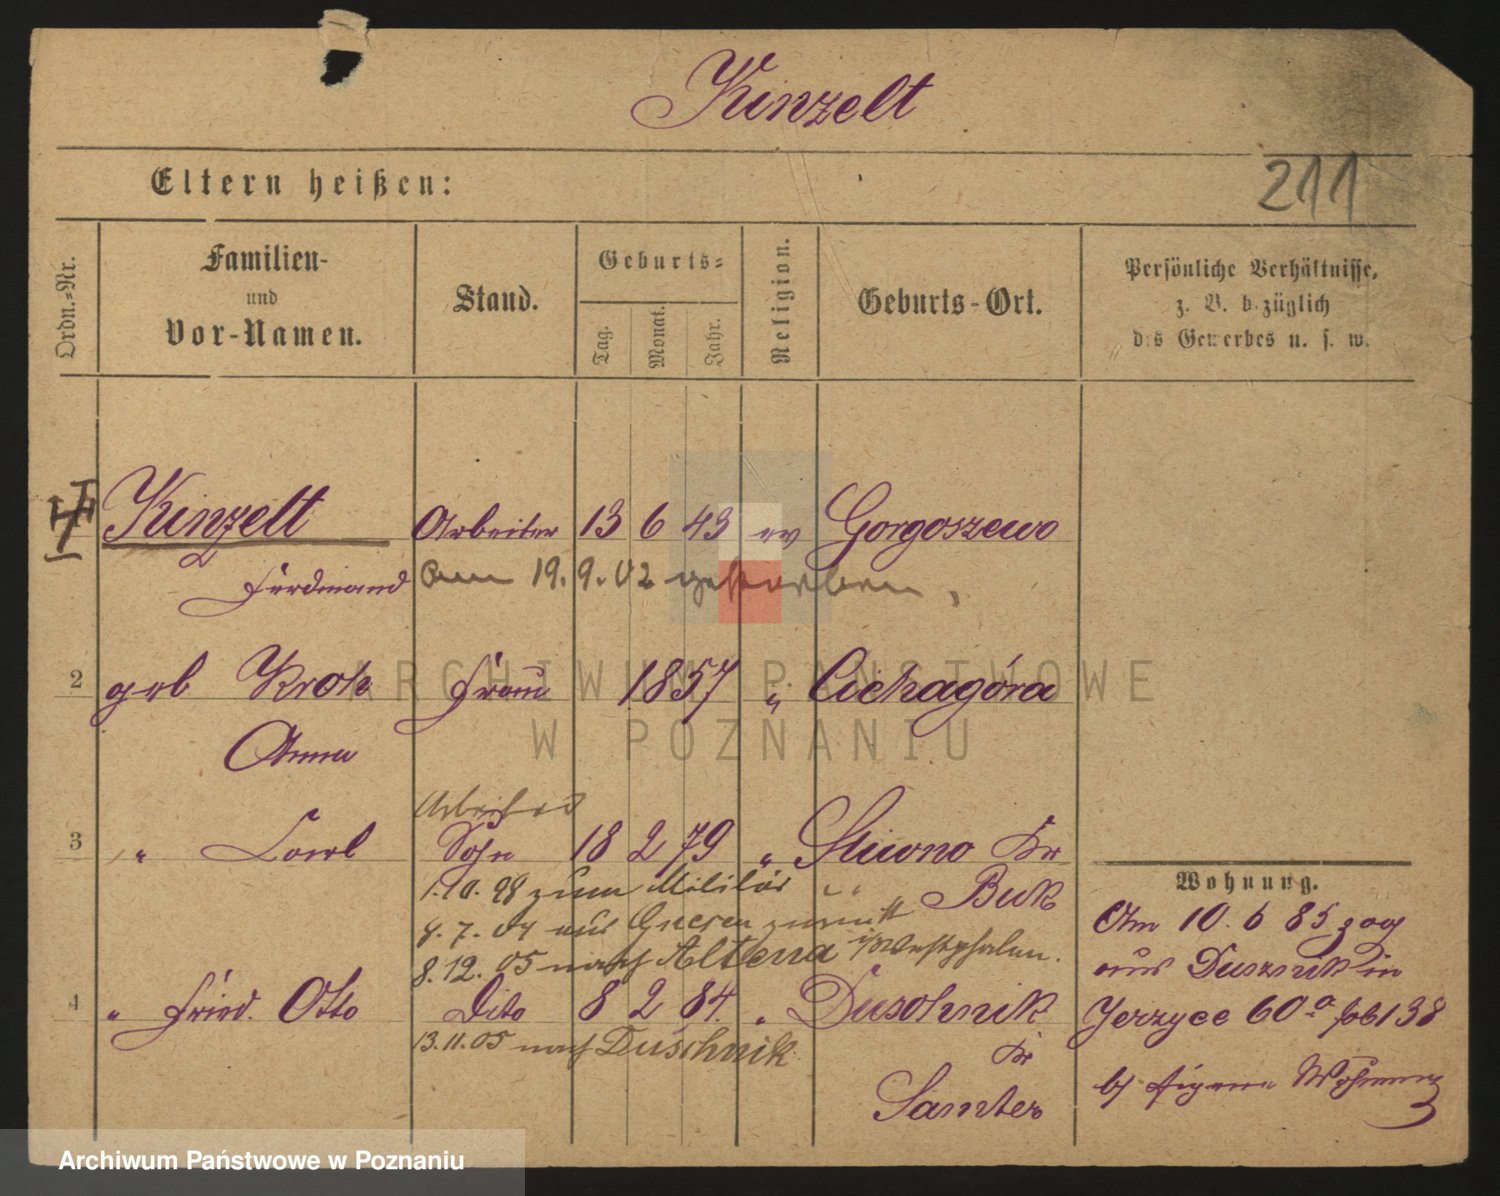 Kinzelt
Eltern heißen:
211
Ordn.=Nr.
Familien-
und
Vor-Namen.
Stand.
Geburts=
Tag.
Monat.
Jahr.
Religion.
Geburts-Ort.
Persönliche Verhältnisse,
z. B. bezüglich
des Gewerbes u. s. w.
Kinzelt Arbeiter 13 6 43 ev Gorgoszewo
Ferdinand am 19.9.02 gestorben,
2 geb Kroh Frau 1857 " Cichagóra
Anna
Arbeiter
3 " Carl Sohn 18 2 79 " Sliwno Kr
1.10.98 zum Militär Buk
8.7.04 aus Gnesen zurück
8.12.05 nach Altena i/Westphalen.
4 " Fried. Otto Dito 8 2 84. " Duschnik
13.11.05 nach Duschnik Kr
Samter
Wohnung.
Am 10.6 85 zog
aus Dusznik in
Jerzyce 60a 138
b/ eigene Wohnung
ARCHIWUM PAŃSTWOWE
W POZNANIU
Archiwum Państwowe w Poznaniu